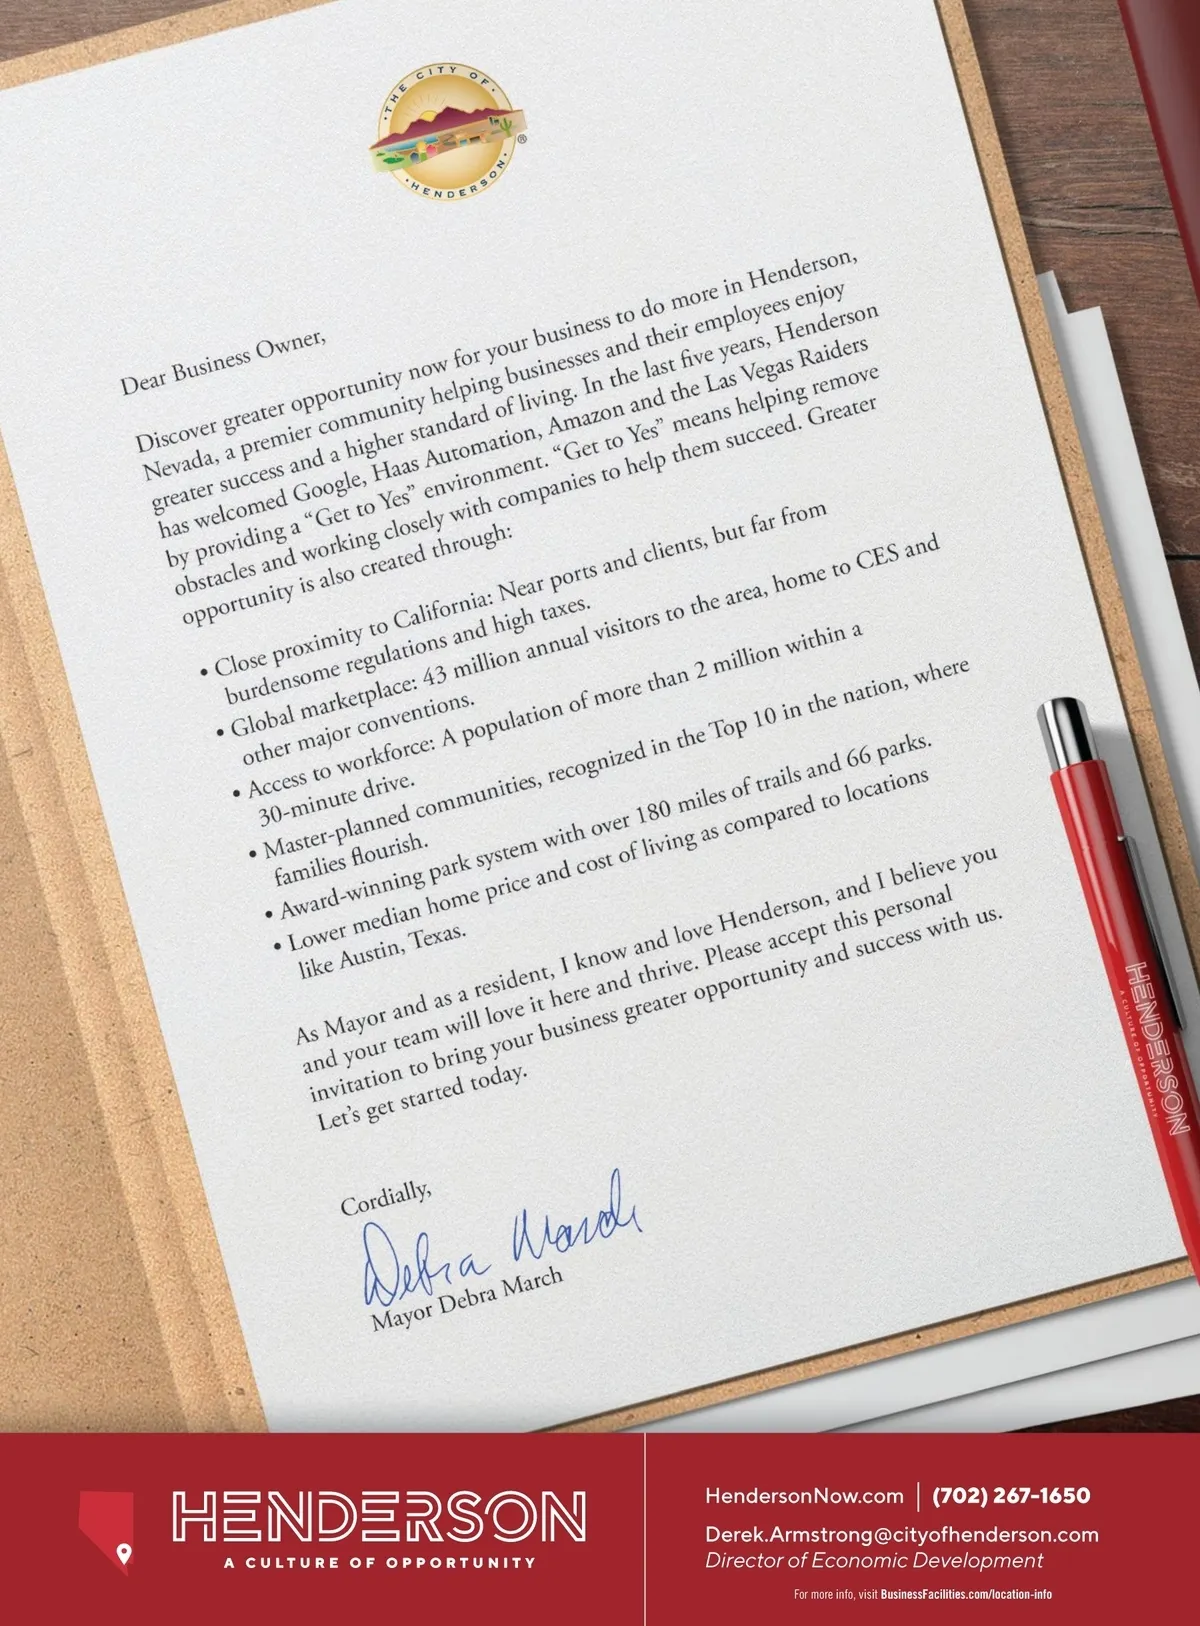 THE CITY OF
HENDERSON
®
Dear Business Owner,
Discover greater opportunity now for your business to do more in Henderson,
Nevada, a premier community helping businesses and their employees enjoy
greater success and a higher standard of living. In the last five years, Henderson
has welcomed Google, Haas Automation, Amazon and the Las Vegas Raiders
by providing a “Get to Yes” environment. “Get to Yes” means helping remove
obstacles and working closely with companies to help them succeed. Greater
opportunity is also created through:
• Close proximity to California: Near ports and clients, but far from
burdensome regulations and high taxes.
• Global marketplace: 43 million annual visitors to the area, home to CES and
other major conventions.
• Access to workforce: A population of more than 2 million within a
30-minute drive.
• Master-planned communities, recognized in the Top 10 in the nation, where
families flourish.
• Award-winning park system with over 180 miles of trails and 66 parks.
• Lower median home price and cost of living as compared to locations
like Austin, Texas.
As Mayor and as a resident, I know and love Henderson, and I believe you
and your team will love it here and thrive. Please accept this personal
invitation to bring your business greater opportunity and success with us.
Let’s get started today.
Cordially,
Debra March
Mayor Debra March
HENDERSON
A CULTURE OF OPPORTUNITY
HENDERSON
A CULTURE OF OPPORTUNITY
HendersonNow.com | (702) 267-1650
Derek.Armstrong@cityofhenderson.com
Director of Economic Development
For more info, visit BusinessFacilities.com/location-info